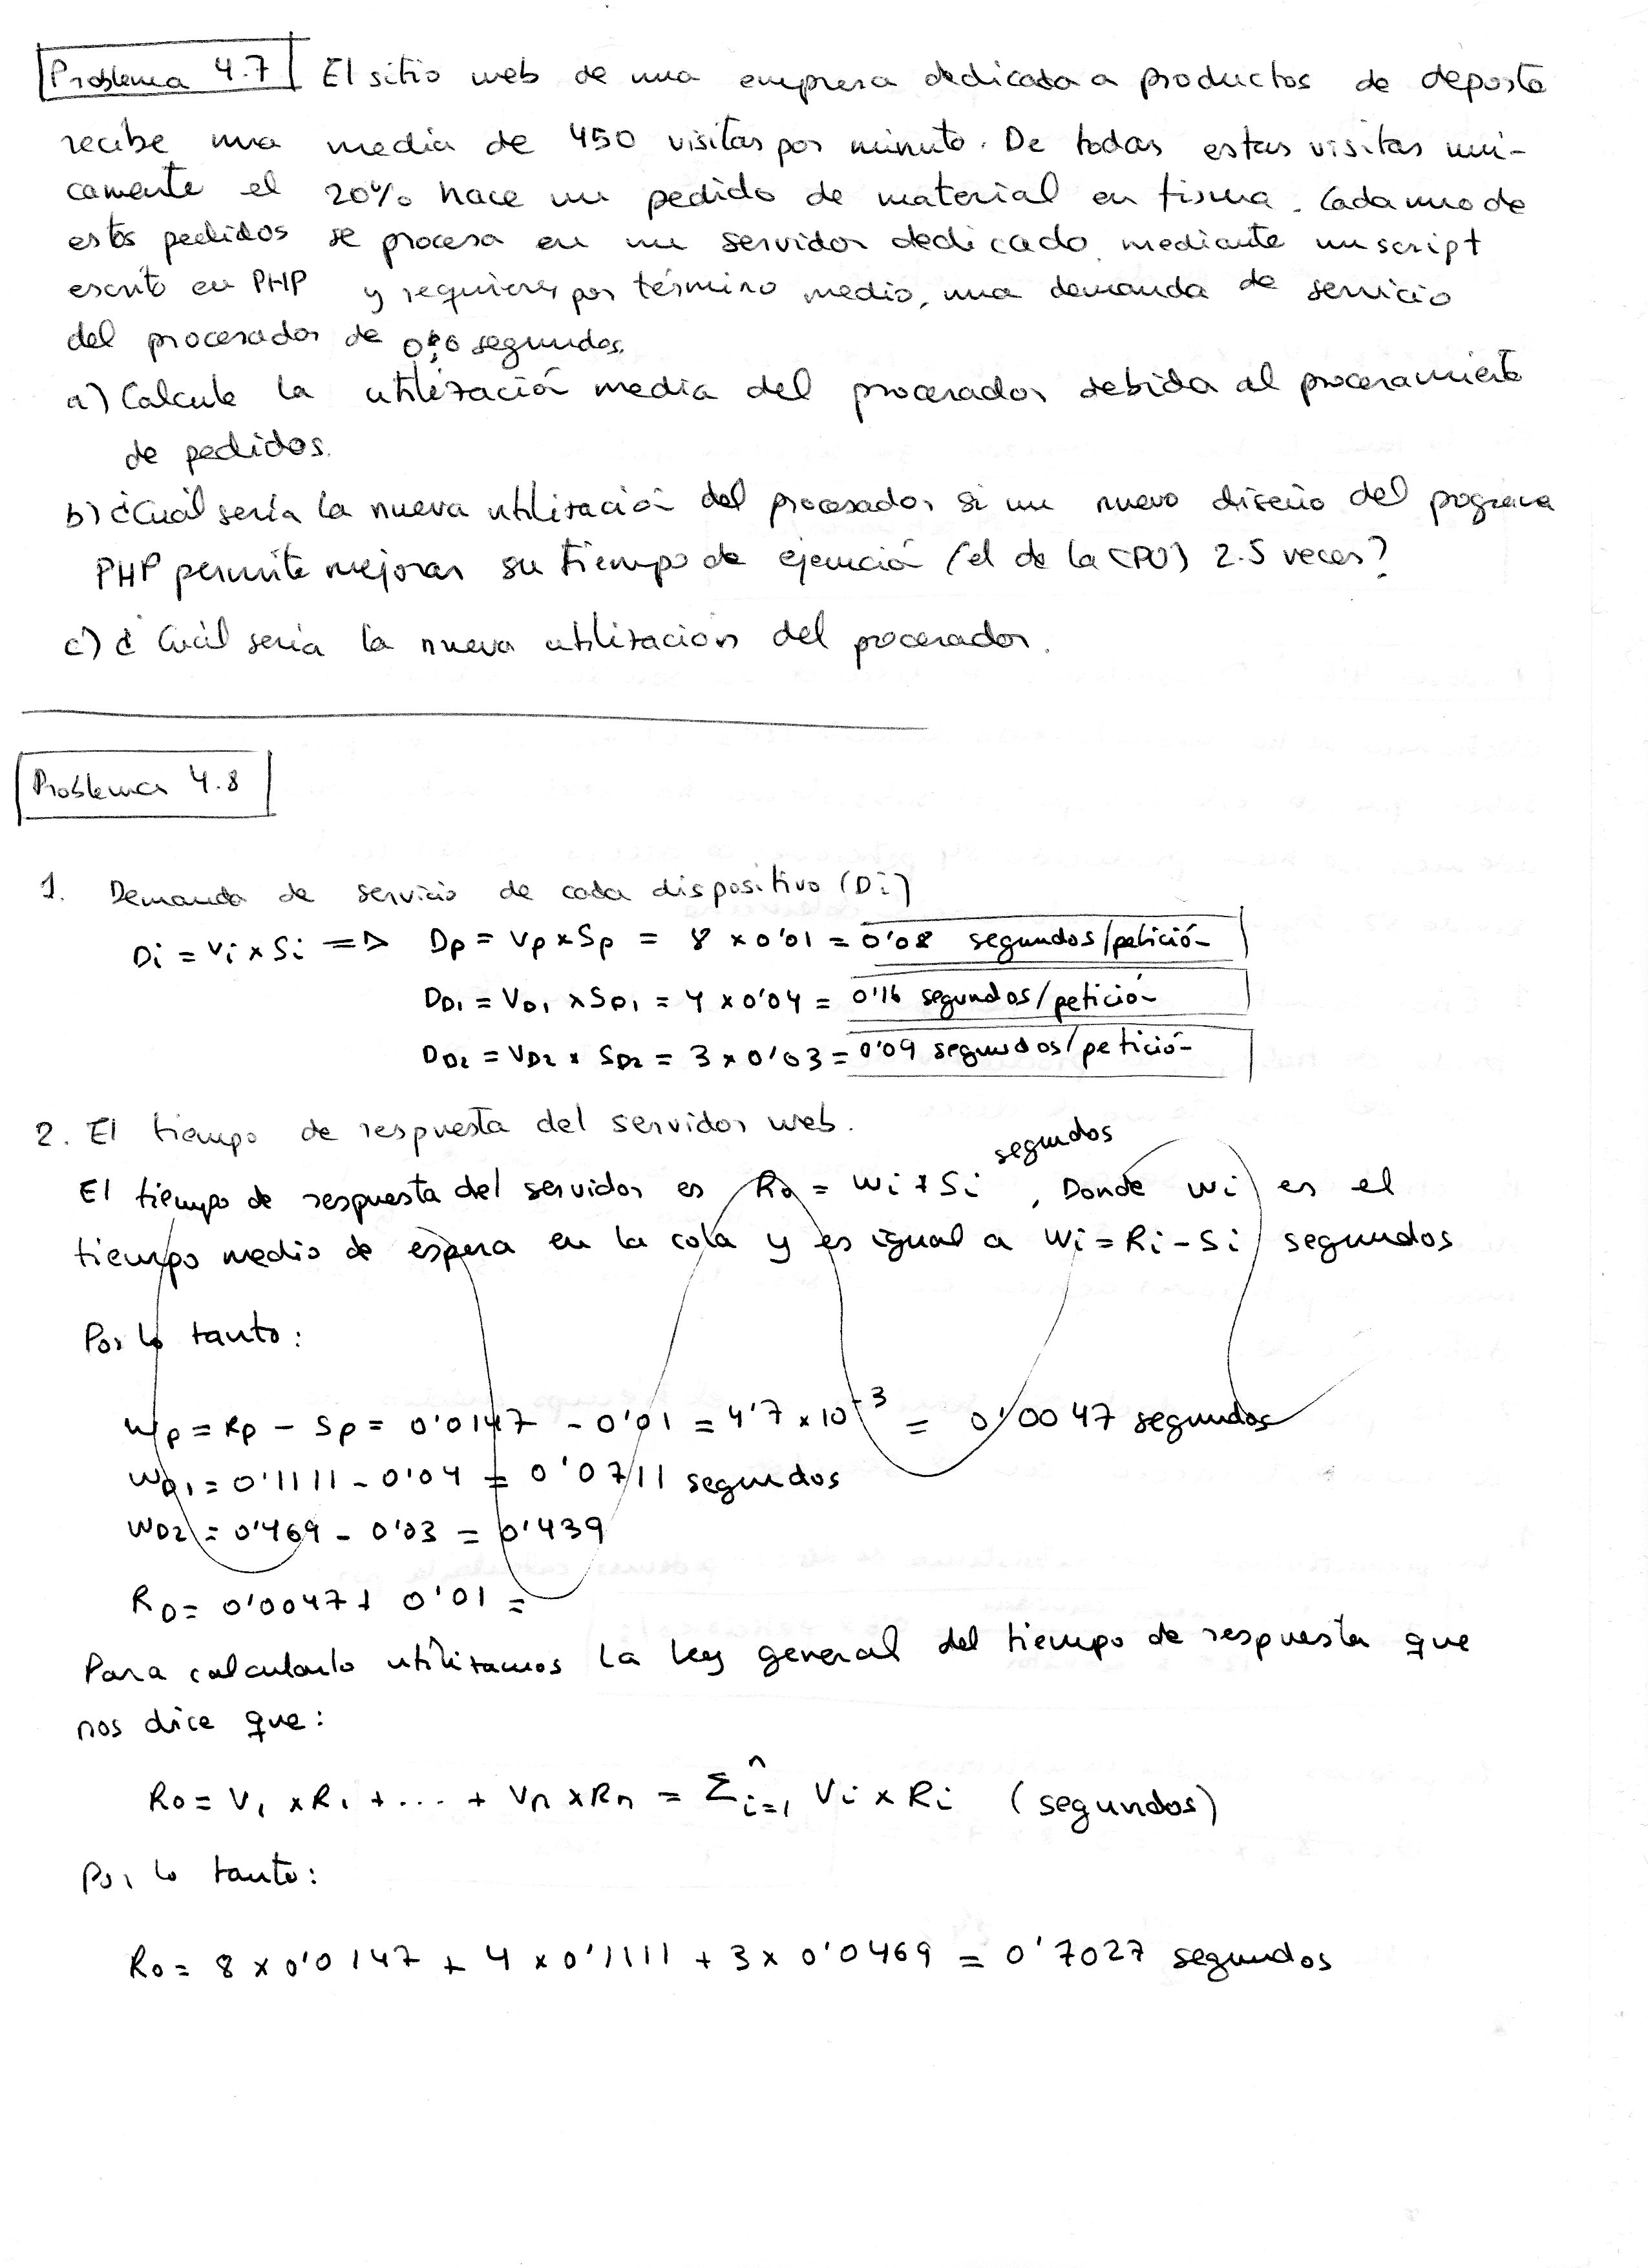 Problema 4.7 El sitio web de una empresa dedicada a productos de deporte
recibe una media de 450 visitas por minuto. De todas estas visitas uni-
camente el 20% hace un pedido de material en firma. Cada uno de
estos pedidos se procesa en un servidor dedicado mediante un script
escrito en PHP y requiere, por término medio, una demanda de servicio
del procesador de segundos.
a) Calcule la utilización media del procesador debida al procesamiento
de pedidos.
b) ¿Cuál sería la nueva utilización del procesador si un nuevo diseño del programa
PHP permite mejorar su tiempo de ejecución (el de la CPU) 2.5 veces?
c) ¿Cuál sería la nueva utilización del procesador.
Problema 4.8
1. Demanda de servicio de cada dispositivo (Di)
Di = Vi x Si => Dp = Vp x Sp = 8 x 0'01 = 0'08 segundos/petición
DD1 = VD1 x SD1 = 4 x 0'04 = 0'16 segundos/petición
DD2 = VD2 x SD2 = 3 x 0'03 = 0'09 segundos/petición
2. El tiempo de respuesta del servidor web.
segundos
El tiempo de respuesta del servidor es R0 = Wi + Si , Donde Wi es el
tiempo medio de espera en la cola y es igual a Wi = Ri - Si segundos
Por lo tanto:
Wp = Rp - Sp = 0'0147 - 0'01 = 4'7 x 10^-3 = 0'0047 segundos
WD1 = 0'1111 - 0'04 = 0'0711 segundos
WD2 = 0'469 - 0'03 = 0'439
R0 = 0'0047 + 0'01 =
Para calcularlo utilizamos la ley general del tiempo de respuesta que
nos dice que:
R0 = V1 x R1 + ... + Vn x Rn = Σ^n i=1 Vi x Ri (segundos)
Por lo tanto:
R0 = 8 x 0'0147 + 4 x 0'1111 + 3 x 0'0469 = 0'7027 segundos